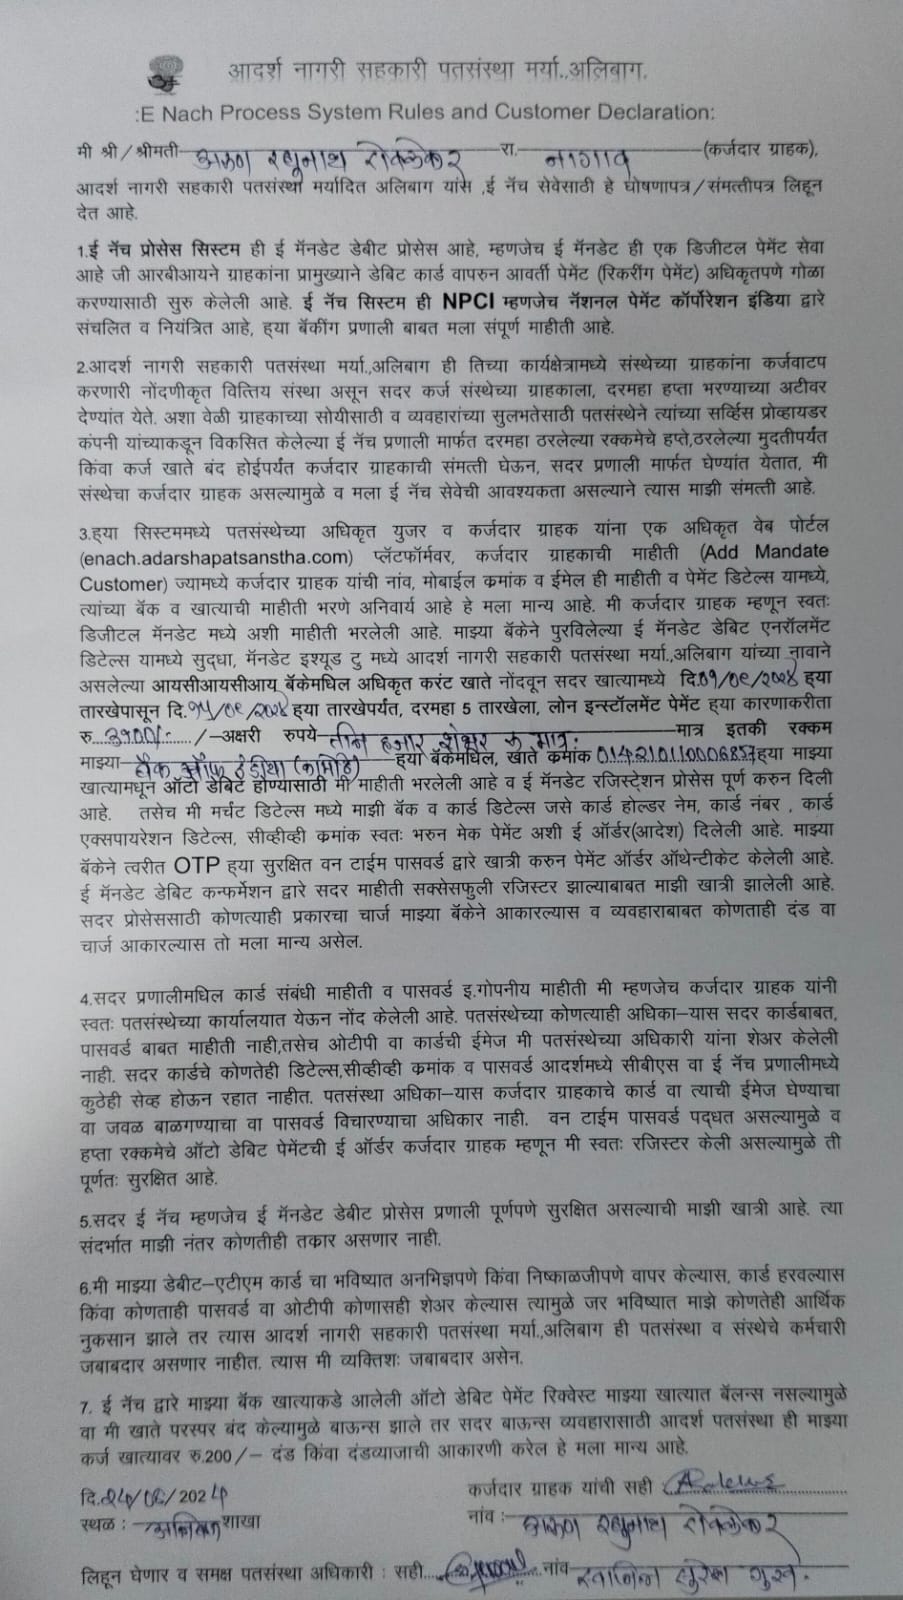 आदर्श नागरी सहकारी पतसंस्था मर्या.,अलिबाग.
:E Nach Process System Rules and Customer Declaration:
मी श्री/श्रीमती रघुनाथ रा. नागाव (कर्जदार ग्राहक),
आदर्श नागरी सहकारी पतसंस्था मर्यादित अलिबाग यांस ,ई नॅच सेवेसाठी हे घोषणापत्र/संमत्तीपत्र लिहून
देत आहे.
1.ई नॅच प्रोसेस सिस्टम ही ई मॅनडेट डेबीट प्रोसेस आहे, म्हणजेच ई मॅनडेट ही एक डिजीटल पेमेंट सेवा
आहे जी आरबीआयने ग्राहकांना प्रामुख्याने डेबिट कार्ड वापरुन आवर्ती पेमेंट (रिकरींग पेमेंट) अधिकृतपणे गोळा
करण्यासाठी सुरु केलेली आहे. ई नॅच सिस्टम ही NPCI म्हणजेच नॅशनल पेमेंट कॉर्पोरेशन इंडिया द्वारे
संचलित व नियंत्रित आहे, ह्या बॅकींग प्रणाली बाबत मला संपूर्ण माहीती आहे.
2.आदर्श नागरी सहकारी पतसंस्था मर्या.,अलिबाग ही तिच्या कार्यक्षेत्रामध्ये संस्थेच्या ग्राहकांना कर्जवाटप
करणारी नोंदणीकृत वित्तिय संस्था असून सदर कर्ज संस्थेच्या ग्राहकाला, दरमहा हप्ता भरण्याच्या अटीवर
देण्यांत येते. अशा वेळी ग्राहकाच्या सोयीसाठी व व्यवहारांच्या सुलभतेसाठी पतसंस्थेने त्यांच्या सर्व्हिस प्रोव्हायडर
कंपनी यांच्याकडून विकसित केलेल्या ई नॅच प्रणाली मार्फत दरमहा ठरलेल्या रक्कमेचे हप्ते,ठरलेल्या मुदतीपर्यंत
किंवा कर्ज खाते बंद होईपर्यंत कर्जदार ग्राहकाची संमत्ती घेऊन, सदर प्रणाली मार्फत घेण्यांत येतात, मी
संस्थेचा कर्जदार ग्राहक असल्यामुळे व मला ई नॅच सेवेची आवश्यकता असल्याने त्यास माझी संमत्ती आहे.
3.ह्या सिस्टममध्ये पतसंस्थेच्या अधिकृत युजर व कर्जदार ग्राहक यांना एक अधिकृत वेब पोर्टल
(enach.adarshapatsanstha.com) प्लॅटफॉर्मवर, कर्जदार ग्राहकाची माहीती (Add Mandate
Customer) ज्यामध्ये कर्जदार ग्राहक यांची नांव, मोबाईल क्रमांक व ईमेल ही माहीती व पेमेंट डिटेल्स यामध्ये,
त्यांच्या बॅक व खात्याची माहीती भरणे अनिवार्य आहे हे मला मान्य आहे. मी कर्जदार ग्राहक म्हणून स्वतः
डिजीटल मॅनडेट मध्ये अशी माहीती भरलेली आहे. माझ्या बॅकेने पुरविलेल्या ई मॅनडेट डेबिट एनरॉलमेंट
डिटेल्स यामध्ये सुद्धा, मॅनडेट इश्यूड टु मध्ये आदर्श नागरी सहकारी पतसंस्था मर्या.,अलिबाग यांच्या नावाने
असलेल्या आयसीआयसीआय बॅकेमधिल अधिकृत करंट खाते नोंदवून सदर खात्यामध्ये दि. ह्या
तारखेपासून दि. ह्या तारखेपर्यंत, दरमहा 5 तारखेला, लोन इन्स्टॉलमेंट पेमेंट ह्या कारणाकरीता
रु. ३१००/- /-अक्षरी रुपये तीन हजार शंभर रु मात्र. मात्र इतकी रक्कम
माझ्या बँक ऑफ इंडीया ह्या बॅकेमधिल, खाते क्रमांक 014210110006857 ह्या माझ्या
खात्यामधून ऑटो डेबिट होण्यासाठी मी माहीती भरलेली आहे व ई मॅनडेट रजिस्ट्रेशन प्रोसेस पूर्ण करुन दिली
आहे. तसेच मी मर्चंट डिटेल्स मध्ये माझी बॅक व कार्ड डिटेल्स जसे कार्ड होल्डर नेम, कार्ड नंबर , कार्ड
एक्सपायरेशन डिटेल्स, सीव्हीव्ही क्रमांक स्वतः भरुन मेक पेमेंट अशी ई ऑर्डर(आदेश) दिलेली आहे. माझ्या
बॅकेने त्वरीत OTP ह्या सुरक्षित वन टाईम पासवर्ड द्वारे खात्री करुन पेमेंट ऑर्डर ऑथेन्टीकेट केलेली आहे.
ई मॅनडेट डेबिट कन्फर्मेशन द्वारे सदर माहीती सक्सेसफुली रजिस्टर झाल्याबाबत माझी खात्री झालेली आहे.
सदर प्रोसेससाठी कोणत्याही प्रकारचा चार्ज माझ्या बॅकेने आकारल्यास व व्यवहाराबाबत कोणताही दंड वा
चार्ज आकारल्यास तो मला मान्य असेल.
4.सदर प्रणालीमधिल कार्ड संबंधी माहीती व पासवर्ड इ.गोपनीय माहीती मी म्हणजेच कर्जदार ग्राहक यांनी
स्वतः पतसंस्थेच्या कार्यालयात येऊन नोंद केलेली आहे. पतसंस्थेच्या कोणत्याही अधिका–यास सदर कार्डबाबत,
पासवर्ड बाबत माहीती नाही,तसेच ओटीपी वा कार्डची ईमेज मी पतसंस्थेच्या अधिकारी यांना शेअर केलेली
नाही. सदर कार्डचे कोणतेही डिटेल्स,सीव्हीव्ही क्रमांक व पासवर्ड आदर्शमध्ये सीबीएस वा ई नॅच प्रणालीमध्ये
कुठेही सेव्ह होऊन रहात नाहीत. पतसंस्था अधिका–यास कर्जदार ग्राहकाचे कार्ड वा त्याची ईमेज घेण्याचा
वा जवळ बाळगण्याचा वा पासवर्ड विचारण्याचा अधिकार नाही. वन टाईम पासवर्ड पद्धत असल्यामुळे व
हप्ता रक्कमेचे ऑटो डेबिट पेमेंटची ई ऑर्डर कर्जदार ग्राहक म्हणून मी स्वतः रजिस्टर केली असल्यामुळे ती
पूर्णतः सुरक्षित आहे.
5.सदर ई नॅच म्हणजेच ई मॅनडेट डेबीट प्रोसेस प्रणाली पूर्णपणे सुरक्षित असल्याची माझी खात्री आहे. त्या
संदर्भात माझी नंतर कोणतीही तक्रार असणार नाही.
6.मी माझ्या डेबीट–एटीएम कार्ड चा भविष्यात अनभिज्ञपणे किंवा निष्काळजीपणे वापर केल्यास, कार्ड हरवल्यास
किंवा कोणताही पासवर्ड वा ओटीपी कोणासही शेअर केल्यास त्यामुळे जर भविष्यात माझे कोणतेही आर्थिक
नुकसान झाले तर त्यास आदर्श नागरी सहकारी पतसंस्था मर्या.,अलिबाग ही पतसंस्था व संस्थेचे कर्मचारी
जबाबदार असणार नाहीत. त्यास मी व्यक्तिशः जबाबदार असेन.
7. ई नॅच द्वारे माझ्या बॅक खात्याकडे आलेली ऑटो डेबिट पेमेंट रिक्वेस्ट माझ्या खात्यात बॅलन्स नसल्यामुळे
वा मी खाते परस्पर बंद केल्यामुळे बाऊन्स झाले तर सदर बाऊन्स व्यवहारासाठी आदर्श पतसंस्था ही माझ्या
कर्ज खात्यावर रु.200/– दंड किंवा दंडव्याजाची आकारणी करेल हे मला मान्य आहे.
कर्जदार ग्राहक यांची सही
दि. /2024
नांव : रघुनाथ
स्थळ : अलिबाग शाखा
लिहून घेणार व समक्ष पतसंस्था अधिकारी : सही नांव सुरेश